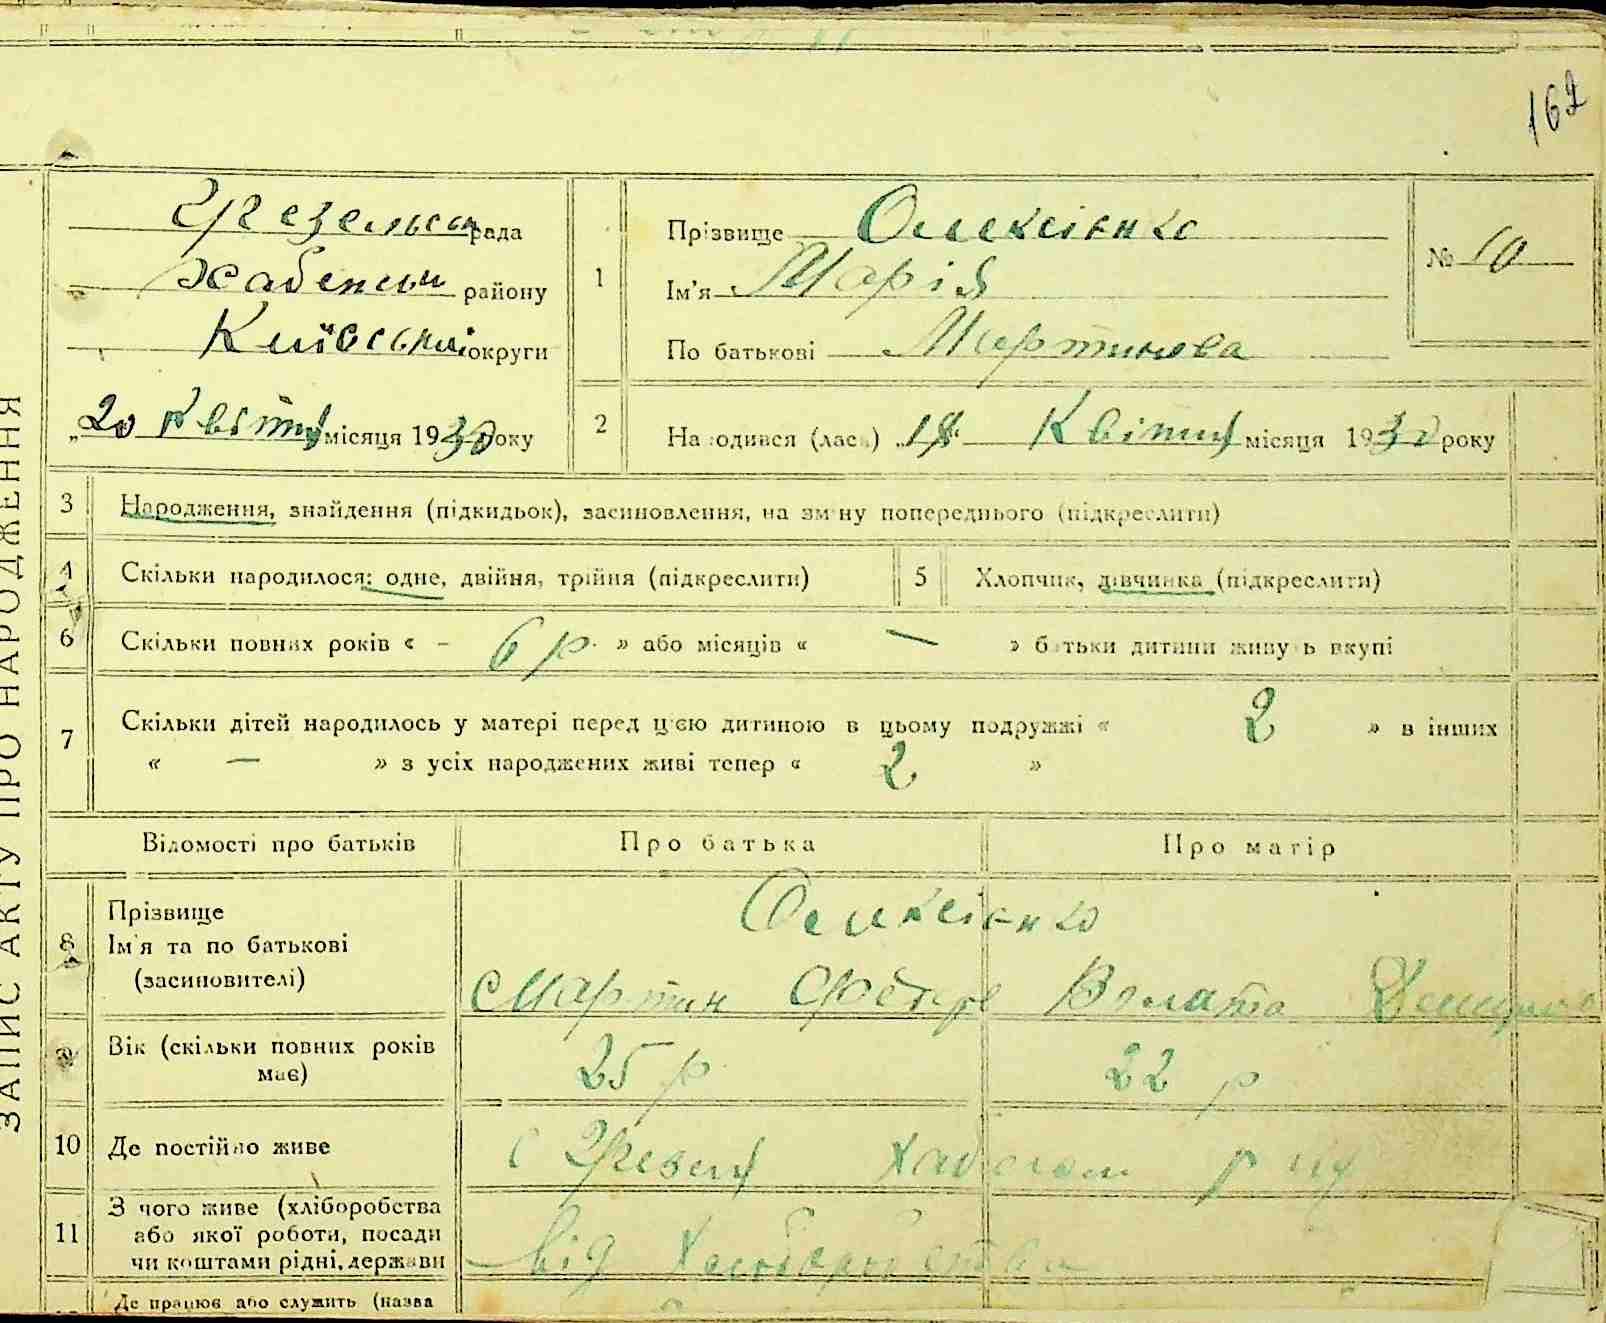 162
ЗАПИС АКТУ ПРО НАРОДЖЕННЯ
Грезельськ рада
Хабенськ району
Київської округи
„20 Квітня місяця 1930 року
1
Прізвище Олексієнко
Ім'я Марія
По батькові Мартинова
№ 10
2
Народився (лась) „18" Квітня місяця 1930 року
3 Народження, знайдення (підкидьок), засиновлення, на зміну попереднього (підкреслити)
4 Скільки народилося: одне, двійня, трійня (підкреслити) 5 Хлопчик, дівчинка (підкреслити)
6 Скільки повних років « - 6 р. » або місяців « — » батьки дитини живуть вкупі
7 Скільки дітей народилось у матері перед цією дитиною в цьому подружжі « 2 » в інших
« — » з усіх народжених живі тепер « 2 »
Відомості про батьків Про батька Про матір
8 Прізвище Олексієнко
Ім'я та по батькові
(засиновителі) Мартин Федор
9 Вік (скільки повних років
має) 25 р 22 р
10 Де постійно живе с Грезля Хабенськ р ну
11 З чого живе (хліборобства
або якої роботи, посади
чи коштами рідні, держави від Хліборобства
Де працює або служить (назва